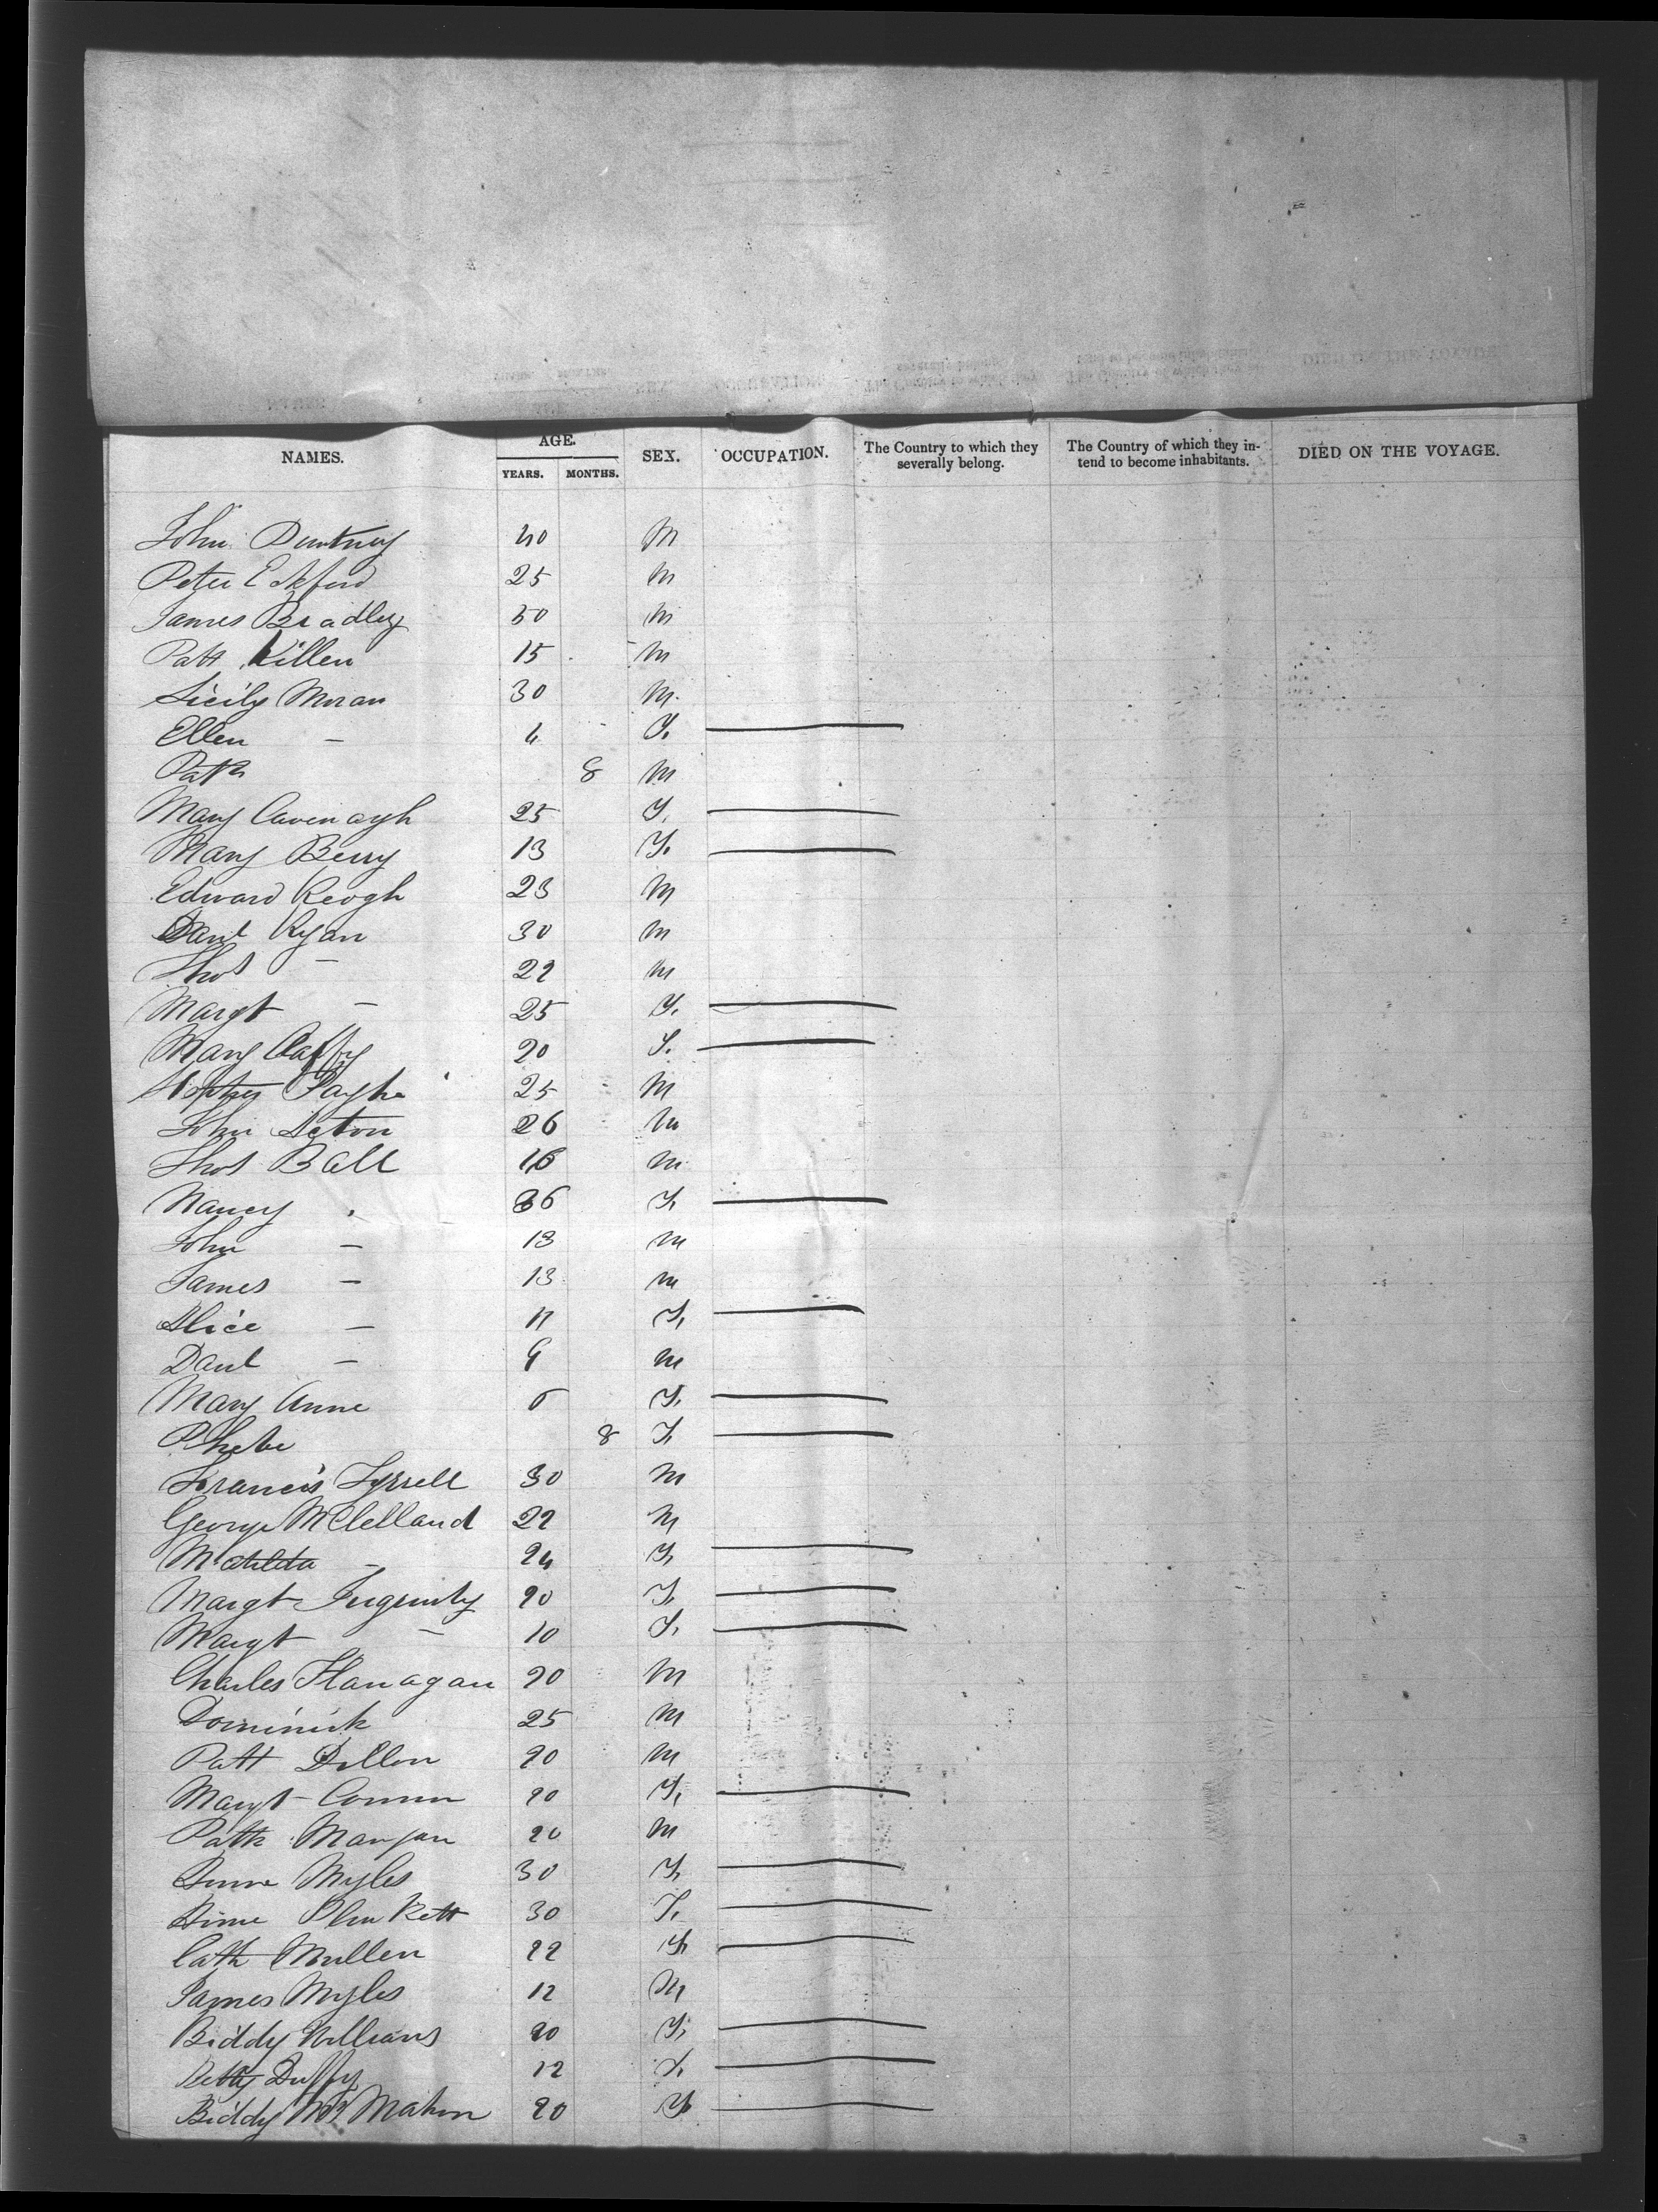 NAMES. AGE. YEARS. MONTHS. SEX. OCCUPATION. The Country to which they severally belong. The Country of which they intend to become inhabitants. DIED ON THE VOYAGE.
John 40 M
Peter Eckford 25 M
James Bradley 50 M
Patt Killen 15 M
Sicily Moran 30 M
Ellen — 4 F.
Patk 8 M
Mary Cavenagh 25 F.
Mary Berry 13 F.
Edward Keogh 23 M
Danl Ryan 30 M
Thos — 22 M
Margt — 25 F.
Mary Caffy 20 F.
25 M
John Acton 26 M
Thos Ball 16 M
Nancy 36 F.
John — 13 M
James — 13 M
Alice — 11 F.
Danl — 9 M
Mary Anne 5 F.
Phebe 8 F.
Francis Tyrrell 30 M
George McClelland 22 M
Matilda — 24 F.
Margt 20 F.
Margt — 10 F.
Charles Flanagan 20 M
Dominick 25 M
Patt Dillon 20 M
Margt 20 F.
Patk Mangan 20 M
Anne Myles 30 F.
Anne Plunkett 30 F.
Cath Mullen 22 F.
James Myles 12 M
Biddy Williams 20 F.
Betty Duffy 12 F.
Biddy McMahon 20 F.